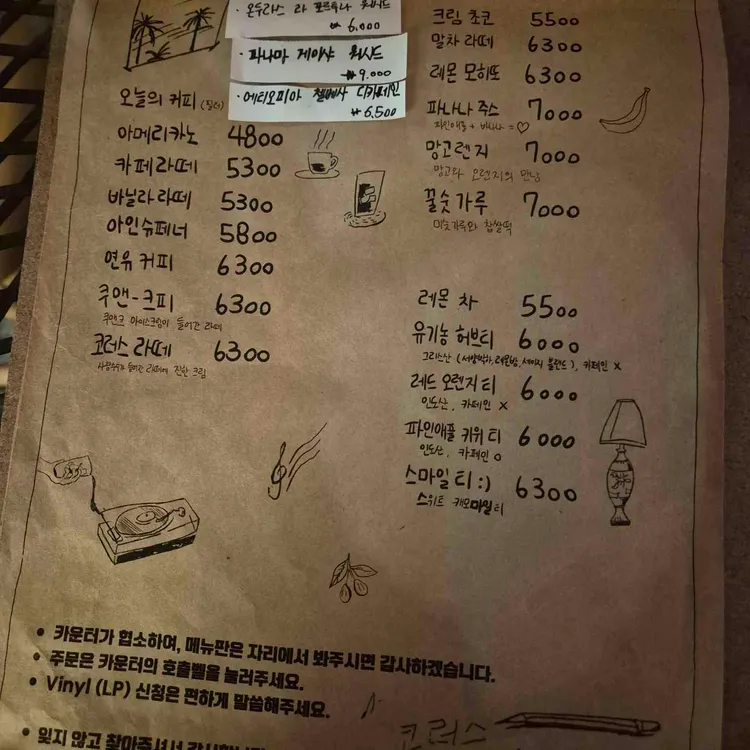 · 온두라스 라 포르투나 워시드
₩ 6,000
· 파나마 게이샤 워시드
₩9,000
오늘의 커피 (필터)
· 에티오피아 첼베사 디카페인
₩6,500
아메리카노 4800
카페라떼 5300
바닐라 라떼 5300
아인슈페너 5800
연유 커피 6300
쿠앤-크피 6300
쿠앤크 아이스크림이 들어간 라떼
코러스 라떼 6300
들어간 라떼에 진한 크림
크림 초코 5500
말차 라떼 6300
레몬 모히또 6300
파나나 주스 7000
파인애플 + 바나나 = ♡
망고렌지 7000
망고와 오렌지의 만남
꿀숫가루 7000
미숫가루와 찹쌀떡
레몬 차 5500
유기농 허브티 6000
그리스산 (서양박하, 레몬밤, 세이지 블렌드), 카페인 X
레드 오렌지 티 6000
인도산, 카페인 X
파인애플 키위 티 6000
인도산, 카페인 O
스마일 티 :) 6300
스위트 캐모마일 티
• 카운터가 협소하여, 메뉴판은 자리에서 봐주시면 감사하겠습니다.
• 주문은 카운터의 호출벨을 눌러주세요.
• Vinyl (LP) 신청은 편하게 말씀해주세요.
• 잊지 않고 찾아주셔서
코러스